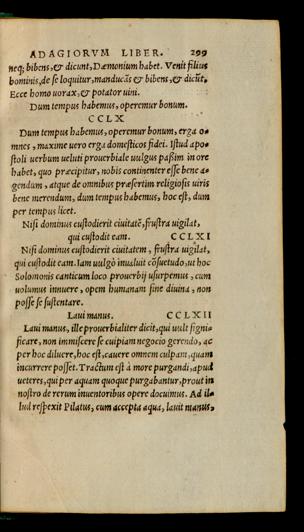 ADAGIORVM LIBER. 299
neq; bibens, & dicunt, Dæmonium habet. Venit filius
hominis, de se loquitur, manducãs & bibens, & dicũt.
Ecce homo uorax, & potator uini.
Dum tempus habemus, operemur bonum.
CCLX
Dum tempus habemus, operemur bonum, erga o-
mnes, maxime uero erga domesticos fidei. Istud apo-
stoli uerbum ueluti prouerbiale uulgus paßim in ore
habet, quo præcipitur, nobis continenter esse bene a-
gendum, atque de omnibus præsertim religiosis uiris
bene merendum, dum tempus habemus, hoc est, dum
per tempus licet.
Nisi dominus custodierit ciuitatẽ, frustra uigilat,
qui custodit eam. CCLXI
Nisi dominus custodierit ciuitatem, frustra uigilat,
qui custodit eam. Iam uulgò inualuit cõsuetudo, ut hoc
Solomonis canticum loco prouerbij usurpemus, cum
uolumus innuere, opem humanam sine diuina, non
posse se sustentare.
Laui manus. CCLXII
Laui manus, ille prouerbialiter dicit, qui uult signi-
ficare, non immiscere se cuipiam negocio gerendo, ac
per hoc diluere, hoc est, cauere omnem culpam, quam
incurrere posset. Tractum est à more purgandi, apud
ueteres, qui per aquam quoque purgabantur, prout in
nostro de rerum inuentoribus opere docuimus. Ad il-
lud respexit Pilatus, cum accepta aqua, lauit manus,